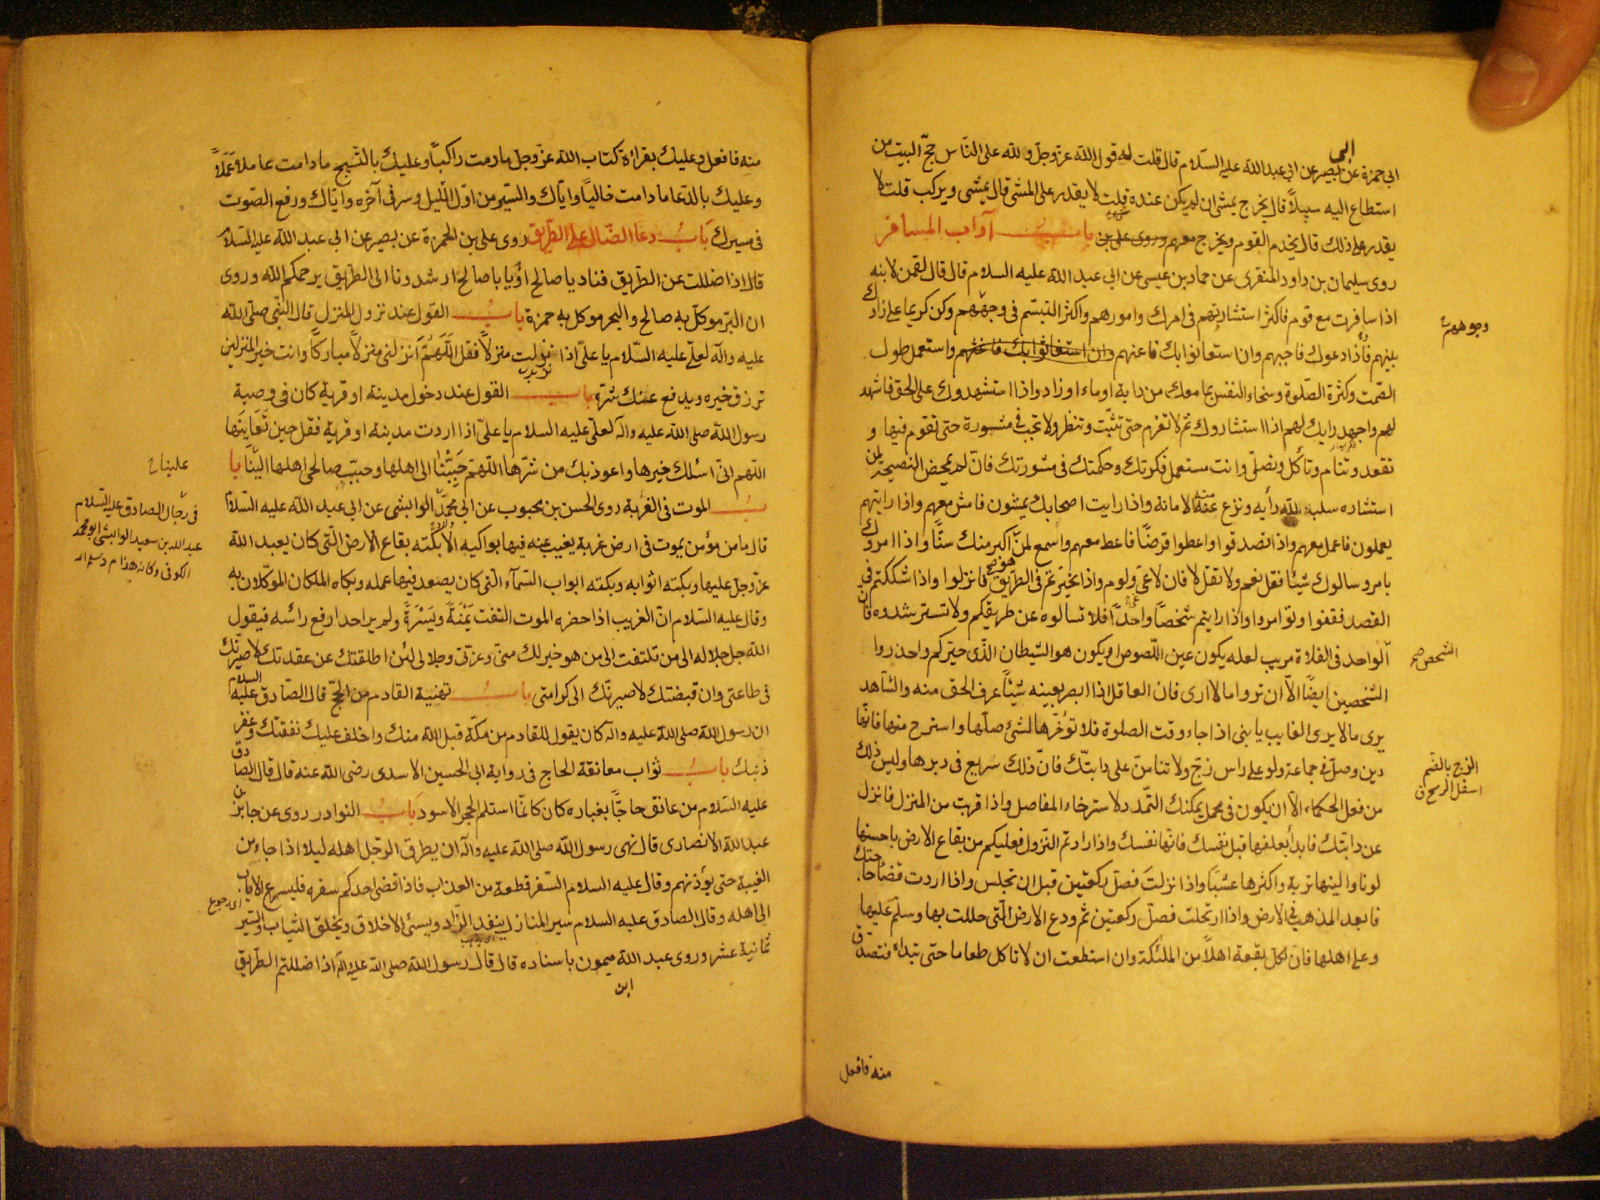 ابى حمزة عن بصير عن ابى عبدالله عليه السلام قال قلت له قول الله عز وجل ولله على الناس حج البيت من
ابى
استطاع اليه سبيلاً قال يخرج يمشى ان لم يكن عنده قلت لا يقدر على المشى قال يمشى ويركب قلت لا
يقدر على ذلك قال يخدم القوم ويخرج معهم وروى على بن باب آداب المسافر
روى سليمان بن داود المنقرى عن حماد بن عيسى عن ابى عبد الله عليه السلام قال قال لقمن لابنه
اذا سافرت مع قوم فاكثر استشارتهم فى امرك وامورهم واكثر التبسّم فى وجههم وكن كريما على زادك
وجوههم
بينهم فاذا دعوك فاجبهم وان استعانوا بك فاعنهم وان استغاثوا بك فاغثهم واستعمل طول
الصمت وكثرة الصلوة وسخاء النفس بما معك من دابة او ماء او زاد واذا استشهدوك على الحق فاشهد
لهم واجهد رايك لهم اذا استشاروك ثم لا تعزم حتى تثبّت وتنظر ولا تجب فى مشورة حتى تقوم فيها و
تقعد وتنام وتأكل وتصلى وانت مستعمل فكرتك وحكمتك فى مشورتك فانّ من لم يمحض النصيحة لمن
استشاره سلبه الله رأيه ونزع عنه الامانة واذا رايت اصحابك يمشون فامش معهم واذا رايتهم
يعملون فاعمل معهم واذا تصدقوا واعطوا قرضًا فاعط معهم واسمع لمن اكبر منك سنًّا واذا امروك
بامر وسالوك شيئًا فقل نعم ولا تقل لا فان لا عىّ ولوم واذا تحيّرتم فى الطريق فانزلوا واذا شككتم فى
القصد فقفوا وتوامروا واذا رايتم شخصًا واحدًا فلا تسالوه عن طريقكم ولا تسترشدوه فان
الشخص صح
الواحد فى الفلاة مريب لعله يكون عين اللصوص او يكون هو الشيطان الذى حيّركم واحذروا
الشخصين ايضًا الاّ ان تروا ما لا ارى فان العاقل اذا ابصر بعينه شيئًا عرف الحق منه والشاهد
يرى ما لا يرى الغايب يا بنى اذا جاء وقت الصلوة فلا تؤخّرها لشئ صلّها واسترح منها فانها
دين وصلّ فى جماعة ولو على راس زجّ ولا تنامنّ على دابتك فانّ ذلك سريع فى دبرها وليس ذلك
الزج بالضم
اسفل الرمح
من فعل الحكماء الا ان يكون فى محمل يمكنك التمدد لاسترخاء المفاصل واذا قربت من المنزل فانزل
عن دابتك فابدأ بعلفها قبل نفسك فانها نفسك واذا اردتم النزول فعليكم من بقاع الارض باحسنها
لونا والينها تربة واكثرها عشبًا واذا نزلت فصلّ ركعتين قبل ان تجلس واذا اردت قضاء حاجتك
فابعد المذهب فى الارض واذا ارتحلت فصلّ ركعتين ثم ودع الارض التى حللت بها وسلّم عليها
وعلى اهلها فان لكل بقعة اهلاً من الملئكة وان استطعت ان لا تاكل طعاما حتى تبدا فتتصدق
منه فافعل
منه فافعل وعليك بقراءة كتاب الله عز وجل ما دمت راكبًا وعليك بالتسبيح ما دامت عاملا عملاً
وعليك بالدعا ما دامت خاليًا واياك والسير من اول الليل وسر فى آخره واياك ورفع الصوت
فى مسيرك باب دعا الضال على الطريق روى على بن ابى حمزة عن بصير عن ابى عبد الله عليه السلام
قال اذا ضللت عن الطريق فناد يا صالح او يا ابا صالح ارشدونا الى الطريق يرحمكم الله وروى
ان البر موكل به صالح والبحر موكل به حمزة باب القول عند نزول المنزل قال النبى صلى الله
عليه واله لعلى عليه السلام يا على اذا نزلت منزلاً فقل اللهم انزلنى منزلاً مباركًا وانت خير المنزلين
ترزق خيره ويدفع عنك شره باب القول عند دخول مدينة او قرية كان فى وصية
رسول الله صلى الله عليه واله لعلى عليه السلام يا على اذا اردت مدينة او قرية فقل حين تعاينها
اللهم انى اسئلك خيرها واعوذ بك من شرها اللهم حببنا الى اهلها وحبب صالحى اهلها الينا با
ب الموت فى الغربة روى الحسن بن محبوب عن ابى محمد الوابشى عن ابى عبد الله عليه السلام
فى رجال الصادق عليه السلام
عبد الله بن سعيد الوابشى ابو محمد
الكوفى
قال ما من مؤمن يموت فى ارض غربة يغيب عنه فيها بواكيه الا بكته بقاع الارض التى كان يعبد الله
عز وجل عليها وبكته اثوابه وبكته ابواب السمآء التى كان يصعد فيها عمله وبكاه الملكان الموكلان به
وقال عليه السلام ان الغريب اذا حضره الموت التفت يمنة ويسرة ولم ير احدا رفع رأسه فيقول
الله جل جلاله الى من تلتفت الى من هو خير لك منى وعزتى وجلالى لئن اطلقتك عن عقدتك لاصيرنك
فى طاعتى وان قبضتك لاصيرنك الى كرامتى باب تهنية القادم من الحج قال الصادق عليه السلام
ان رسول الله صلى الله عليه واله كان يقول للقادم من مكة قبل الله منك واخلف عليك نفقتك وغفر
ذنبك باب ثواب معانقة الحاج فى رواية ابى الحسين الاسدى رضى الله عنه قال قال الصادق
عليه السلام من عانق حاجًّا بغباره كان كانما استلم الحجر الاسود باب النوادر روى عن جابر بن
عبد الله الانصارى قال نهى رسول الله صلى الله عليه واله ان يطرق الرجل اهله ليلا اذا جاء من
الغيبة حتى يؤذنهم وقال عليه السلام السفر قطعة من العذاب فاذا قضى احدكم سفره فليسرع الاياب
اى رجوع
الى اهله وقال الصادق عليه السلام سير المنازل ينفد الزاد ويسئ الاخلاق ويخلق الثياب والسير
ثمانية عشر وروى عبد الله ميمون باسناده قال قال رسول الله صلى الله عليه واله اذا ضللتم الطريق
ابن